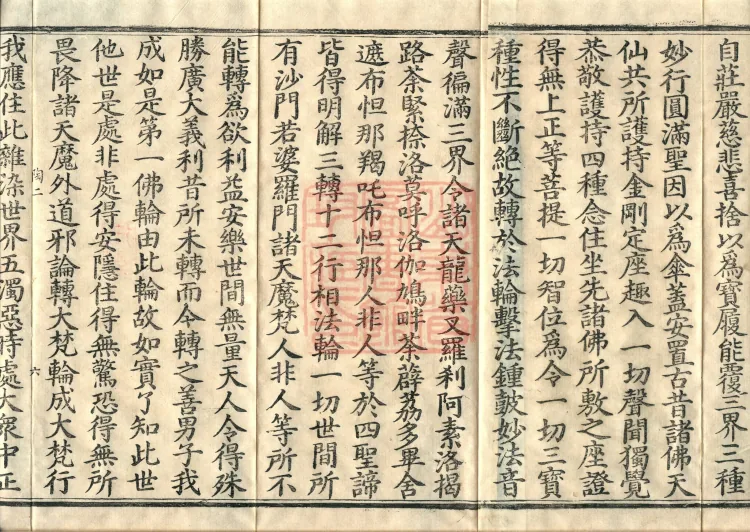 自莊嚴慈悲喜捨以為寶履能覆三界三種
妙行圓滿聖因以為傘蓋安置古昔諸佛天
仙共所護持金剛定座趣入一切聲聞獨覺
恭敬護持四種念住坐先諸佛所敷之座證
得無上正等菩提一切智位為令一切三寶
種性不斷絕故轉於法輪擊法鍾皷妙法音
聲徧滿三界令諸天龍藥叉羅刹阿素洛揭
路荼緊捺洛莫呼洛伽鳩畔荼薜荔多畢舍
遮布怛那羯吒布怛那人非人等於四聖諦
皆得明解三轉十二行相法輪一切世間所
有沙門若婆羅門諸天魔梵人非人等所不
能轉為欲利益安樂世間無量天人令得殊
勝廣大義利昔所未轉而今轉之善男子我
成如是第一佛輪由此輪故如實了知此世
他世是處非處得安隱住得無驚恐得無所
畏降諸天魔外道邪論轉大梵輪成大梵行
陶二 六
我應住此雜染世界五濁惡時處大衆中正